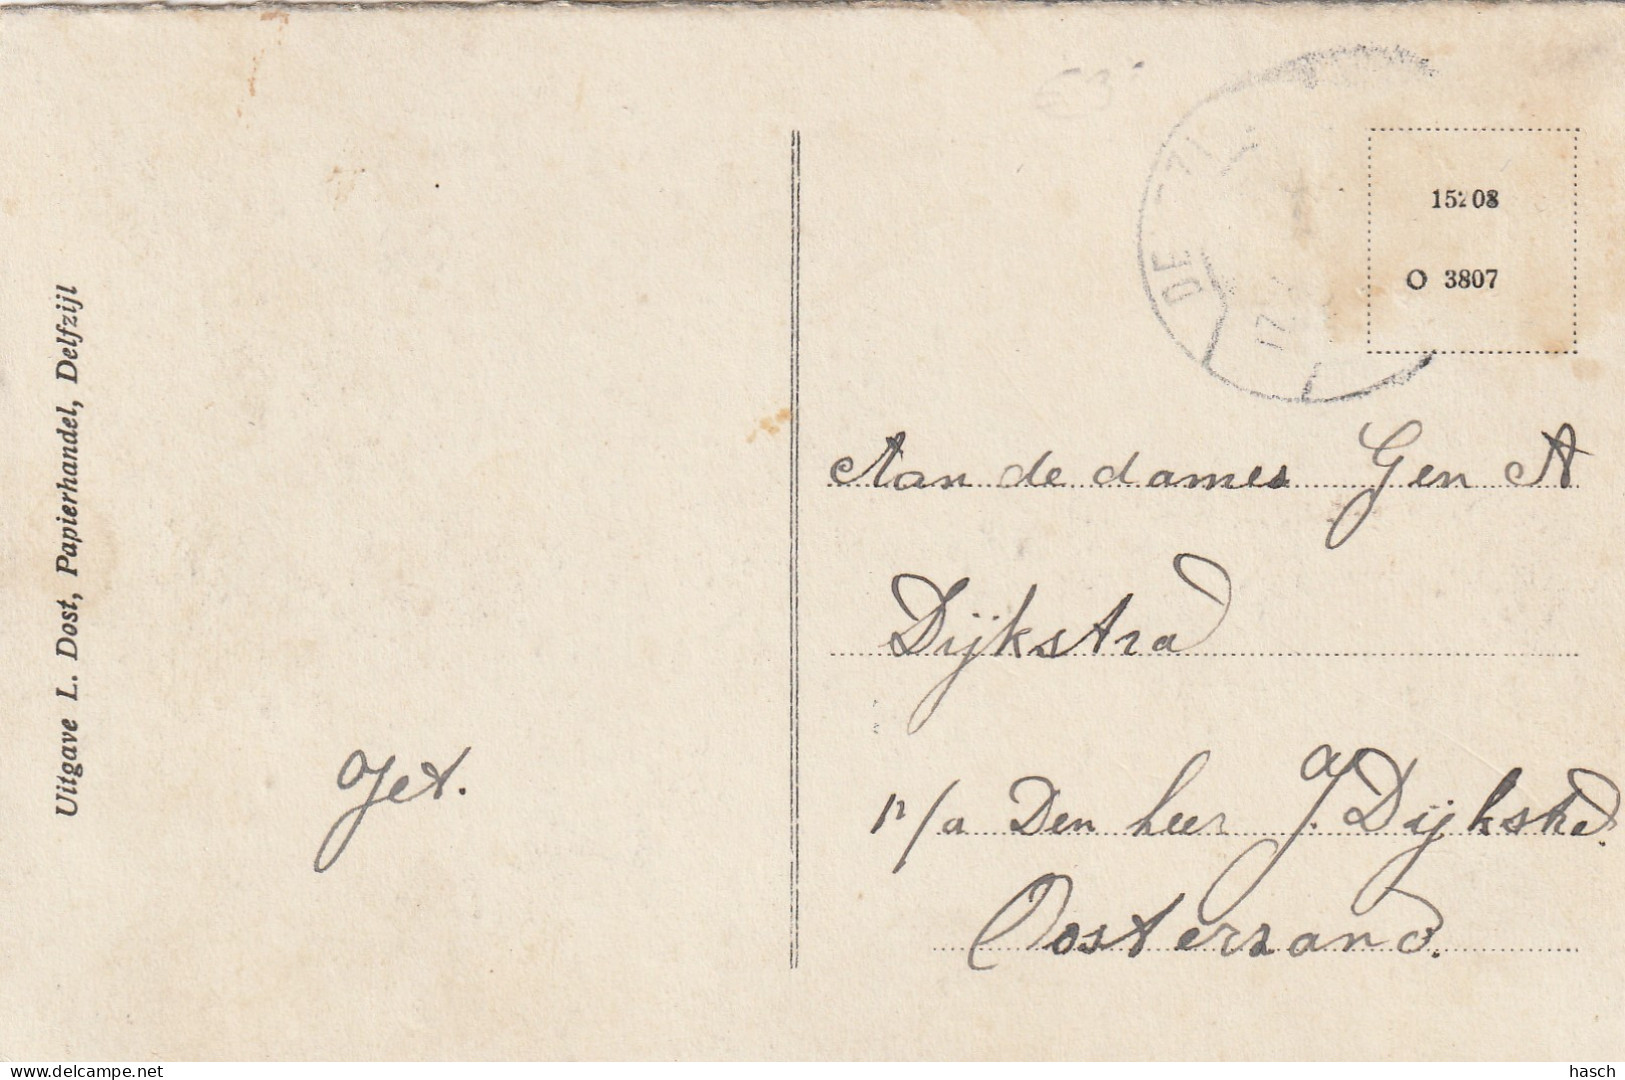 Uitgave L. Dost, Papierhandel, Delfzijl
Jet.
15208
O 3807
Aan de dames G en A
Dijkstra
p/a Den heer J. Dijkstra
Oosterzand.
delcampe.net
hasch